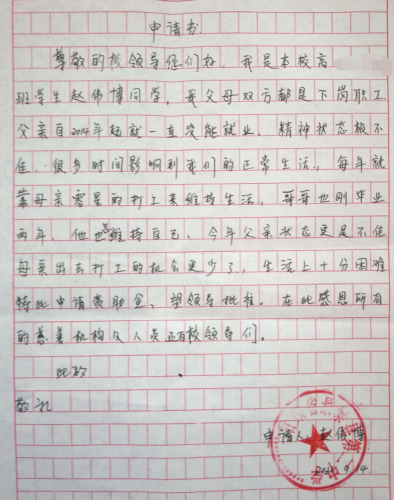 申请书
尊敬的校领导您们好，我是本校高
班学生赵伟博同学，我父母双方都是下岗职工
父亲自2014年起就一直没能就业、精神状态极不
佳、很多时间影响到我们的正常生活，每年就
靠母亲零星的打工来维持生活，哥哥也刚毕业
两年，他也只维持自己，今年父亲状态更是不佳
母亲出去打工的机会更少了，生活上十分困难
特此申请资助金、望领导批准，在此感恩所有
的慈善机构及人员还有校领导们。
此致
敬礼
申请人：赵伟博
9.14